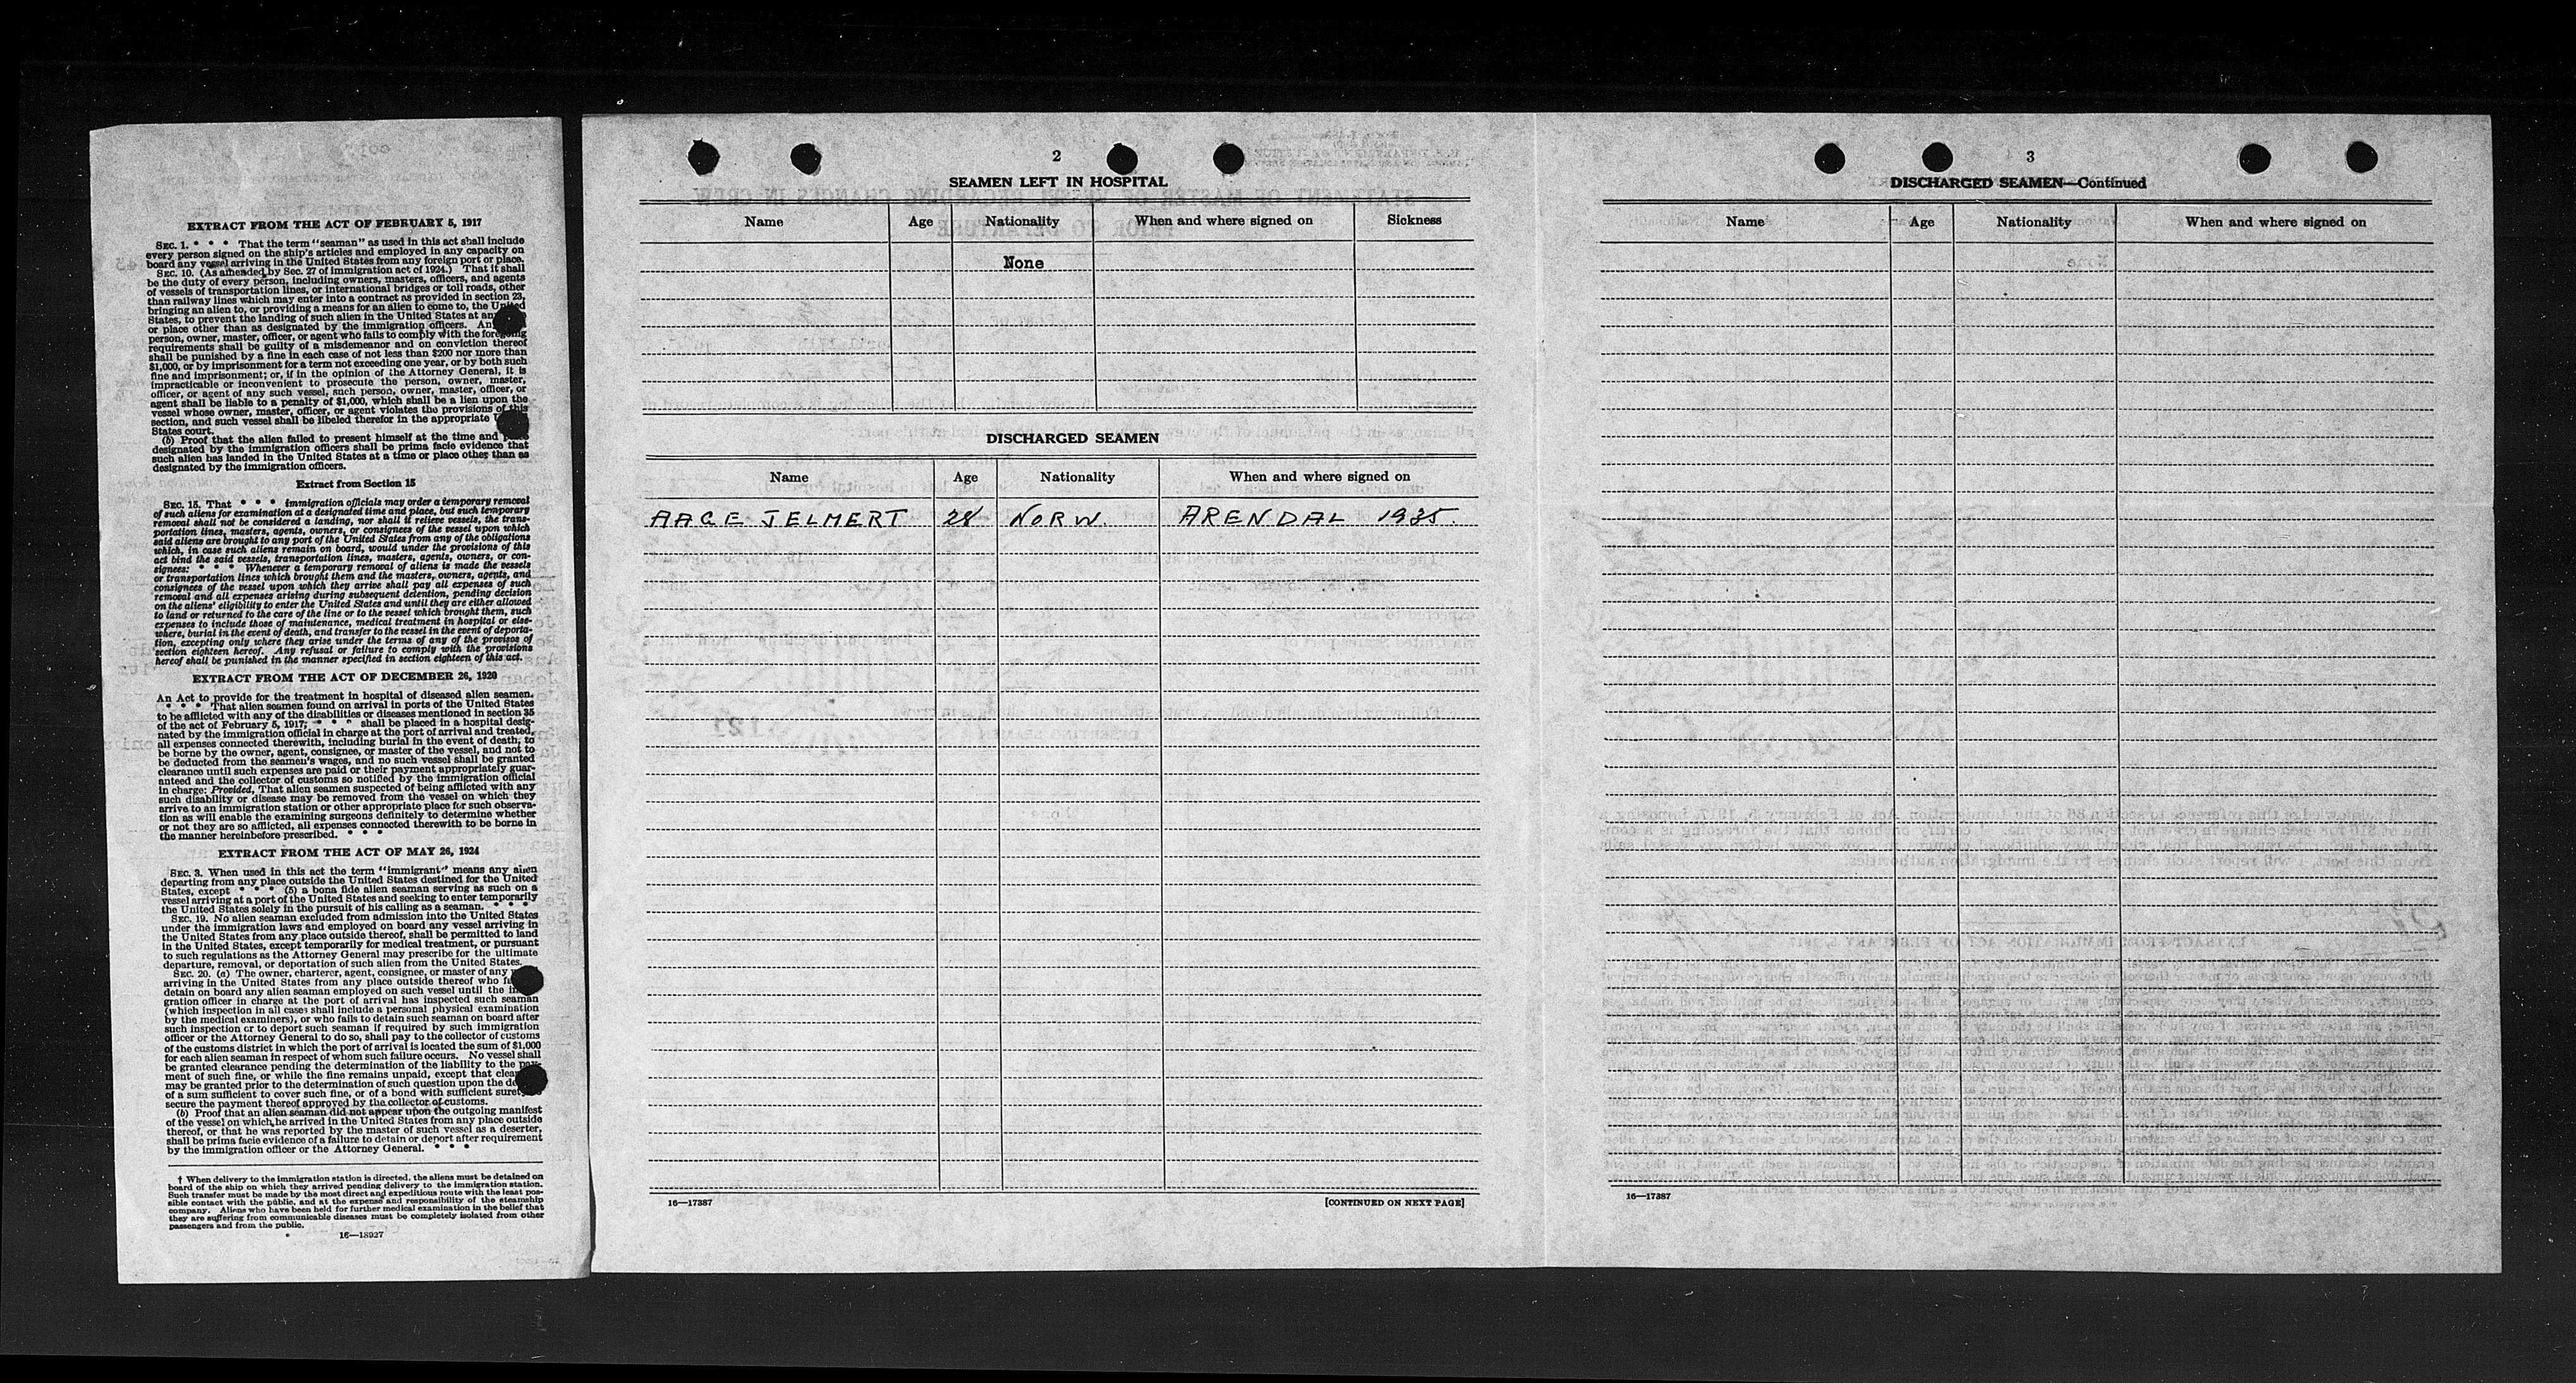 EXTRACT FROM THE ACT OF FEBRUARY 5, 1917
SEC. 1. * * * That the term "seaman" as used in this act shall include
every person signed on the ship's articles and employed in any capacity on
board any vessel arriving in the United States from any foreign port or place.
SEC. 10. (As amended by Sec. 27 of immigration act of 1924.) That it shall
be the duty of every person, including owners, masters, officers, and agents
of vessels of transportation lines, or international bridges or toll roads, other
than railway lines which may enter into a contract as provided in section 23,
bringing an alien to, or providing a means for an alien to come to, the United
States, to prevent the landing of such alien in the United States at any
or place other than as designated by the immigration officers. Any
person, owner, master, officer, or agent who fails to comply with the foregoing
requirements shall be guilty of a misdemeanor and on conviction thereof
shall be punished by a fine in each case of not less than $200 nor more than
$1,000, or by imprisonment for a term not exceeding one year, or by both such
fine and imprisonment; or, if in the opinion of the Attorney General, it is
impracticable or inconvenient to prosecute the person, owner, master,
officer, or agent of any such vessel, such person, owner, master, officer, or
agent shall be liable to a penalty of $1,000, which shall be a lien upon the
vessel whose owner, master, officer, or agent violates the provisions of this
section, and such vessel shall be libeled therefor in the appropriate
States court.
(b) Proof that the alien failed to present himself at the time and place
designated by the immigration officers shall be prima facie evidence that
such alien has landed in the United States at a time or place other than as
designated by the immigration officers.
Extract from Section 15
SEC. 15. That * * * immigration officials may order a temporary removal
of such aliens for examination at a designated time and place, but such temporary
removal shall not be considered a landing, nor shall it relieve vessels, the trans-
portation lines, masters, agents, owners, or consignees of the vessel upon which
said aliens are brought to any port of the United States from any of the obligations
which, in case such aliens remain on board, would under the provisions of this
act bind the said vessels, transportation lines, masters, agents, owners, or con-
signees: * * * Whenever a temporary removal of aliens is made the vessels
or transportation lines which brought them and the masters, owners, agents, and
consignees of the vessel upon which they arrive shall pay all expenses of such
removal and all expenses arising during subsequent detention, pending decision
on the aliens' eligibility to enter the United States and until they are either allowed
to land or returned to the care of the line or to the vessel which brought them, such
expenses to include those of maintenance, medical treatment in hospital or else-
where, burial in the event of death, and transfer to the vessel in the event of deporta-
tion, excepting only where they arise under the terms of any of the provisos of
section eighteen hereof. Any refusal or failure to comply with the provisions
hereof shall be punished in the manner specified in section eighteen of this act.
EXTRACT FROM THE ACT OF DECEMBER 26, 1920
An Act to provide for the treatment in hospital of diseased alien seamen.
* * * That alien seamen found on arrival in ports of the United States
to be afflicted with any of the disabilities or diseases mentioned in section 35
of the act of February 5, 1917, * * * shall be placed in a hospital desig-
nated by the immigration official in charge at the port of arrival and treated,
all expenses connected therewith, including burial in the event of death, to
be borne by the owner, agent, consignee, or master of the vessel, and not to
be deducted from the seamen's wages, and no such vessel shall be granted
clearance until such expenses are paid or their payment appropriately guar-
anteed and the collector of customs so notified by the immigration official
in charge: Provided, That alien seamen suspected of being afflicted with any
such disability or disease may be removed from the vessel on which they
arrive to an immigration station or other appropriate place for such observa-
tion as will enable the examining surgeons definitely to determine whether
or not they are so afflicted, all expenses connected therewith to be borne in
the manner hereinbefore prescribed. * * *
EXTRACT FROM THE ACT OF MAY 26, 1924
SEC. 3. When used in this act the term "immigrant" means any alien
departing from any place outside the United States destined for the United
States, except * * * (5) a bona fide alien seaman serving as such on a
vessel arriving at a port of the United States and seeking to enter temporarily
the United States solely in the pursuit of his calling as a seaman. * * *
SEC. 19. No alien seaman excluded from admission into the United States
under the immigration laws and employed on board any vessel arriving in
the United States from any place outside thereof, shall be permitted to land
in the United States, except temporarily for medical treatment, or pursuant
to such regulations as the Attorney General may prescribe for the ultimate
departure, removal, or deportation of such alien from the United States.
SEC. 20. (a) The owner, charterer, agent, consignee, or master of any
arriving in the United States from any place outside thereof who
detain on board any alien seaman employed on such vessel until the
gration officer in charge at the port of arrival has inspected such seaman
(which inspection in all cases shall include a personal physical examination
by the medical examiners), or who fails to detain such seaman on board after
such inspection or to deport such seaman if required by such immigration
officer or the Attorney General to do so, shall pay to the collector of customs
of the customs district in which the port of arrival is located the sum of $1,000
for each alien seaman in respect of whom such failure occurs. No vessel shall
be granted clearance pending the determination of the liability to the pay-
ment of such fine, or while the fine remains unpaid, except that
may be granted prior to the determination of such question upon the
of a sum sufficient to cover such fine, or of a bond with sufficient
secure the payment thereof approved by the collector of customs.
(b) Proof that an alien seaman did not appear upon the outgoing manifest
of the vessel on which he arrived in the United States from any place outside
thereof, or that he was reported by the master of such vessel as a deserter,
shall be prima facie evidence of a failure to detain or deport after requirement
by the immigration officer or the Attorney General. * * *
† When delivery to the immigration station is directed, the aliens must be detained on
board of the ship on which they arrived pending delivery to the immigration station.
Such transfer must be made by the most direct and expeditious route with the least pos-
sible contact with the public, and at the expense and responsibility of the steamship
company. Aliens who have been held for further medical examination in the belief that
they are suffering from communicable diseases must be completely isolated from other
passengers and from the public.
16—18927
2
SEAMEN LEFT IN HOSPITAL
Name Age Nationality When and where signed on Sickness
None
DISCHARGED SEAMEN
Name Age Nationality When and where signed on
AAGE JELMERT 28 NORW. ARENDAL 1935.
16—17387 [CONTINUED ON NEXT PAGE]
3
DISCHARGED SEAMEN—Continued
Name Age Nationality When and where signed on
16—17387